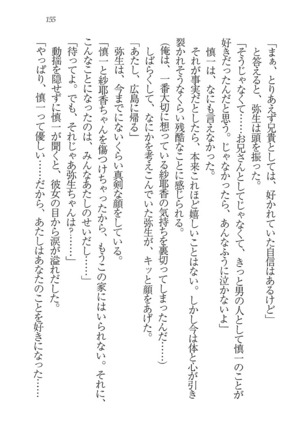 155
「まぁ、とりあえず兄貴としては、好かれていた自信はあるけど」
と答えると、弥生は頭を振った。
「そうじゃなくて……お兄さんとしてじゃなくて、きっと男の人として慎一のことが
好きだったんだと思う。じゃなかったら、あんなふうに泣かないよ」
慎一は、なにも言えなかった。
それが事実だとしたら、本来これほど嬉しいことはない。しかし今は体と心が引き
裂かれそうなくらい残酷なことに感じる。
(俺は、一番大切に想っている紗耶香の気持ちを裏切ってしまったんだ……)
しばらくして、なにかを考えこんでいた弥生が、キッと顔をあげた。
「あたし、広島に帰る」
弥生は、今までにないくらい真剣な顔をしている。
「慎一と紗耶香ちゃんを傷つけちゃったから、もうこの家にはいられない。それに、
こんなことになったのは、みんなあたしのせいだし……」
「待ってよ。でも、それじゃあ弥生ちゃんは……」
動揺を隠せずに慎一が聞くと、彼女の目から涙が溢れだした。
「やっぱり、慎一って優しい……だから、あたしはあなたのことを好きになった……